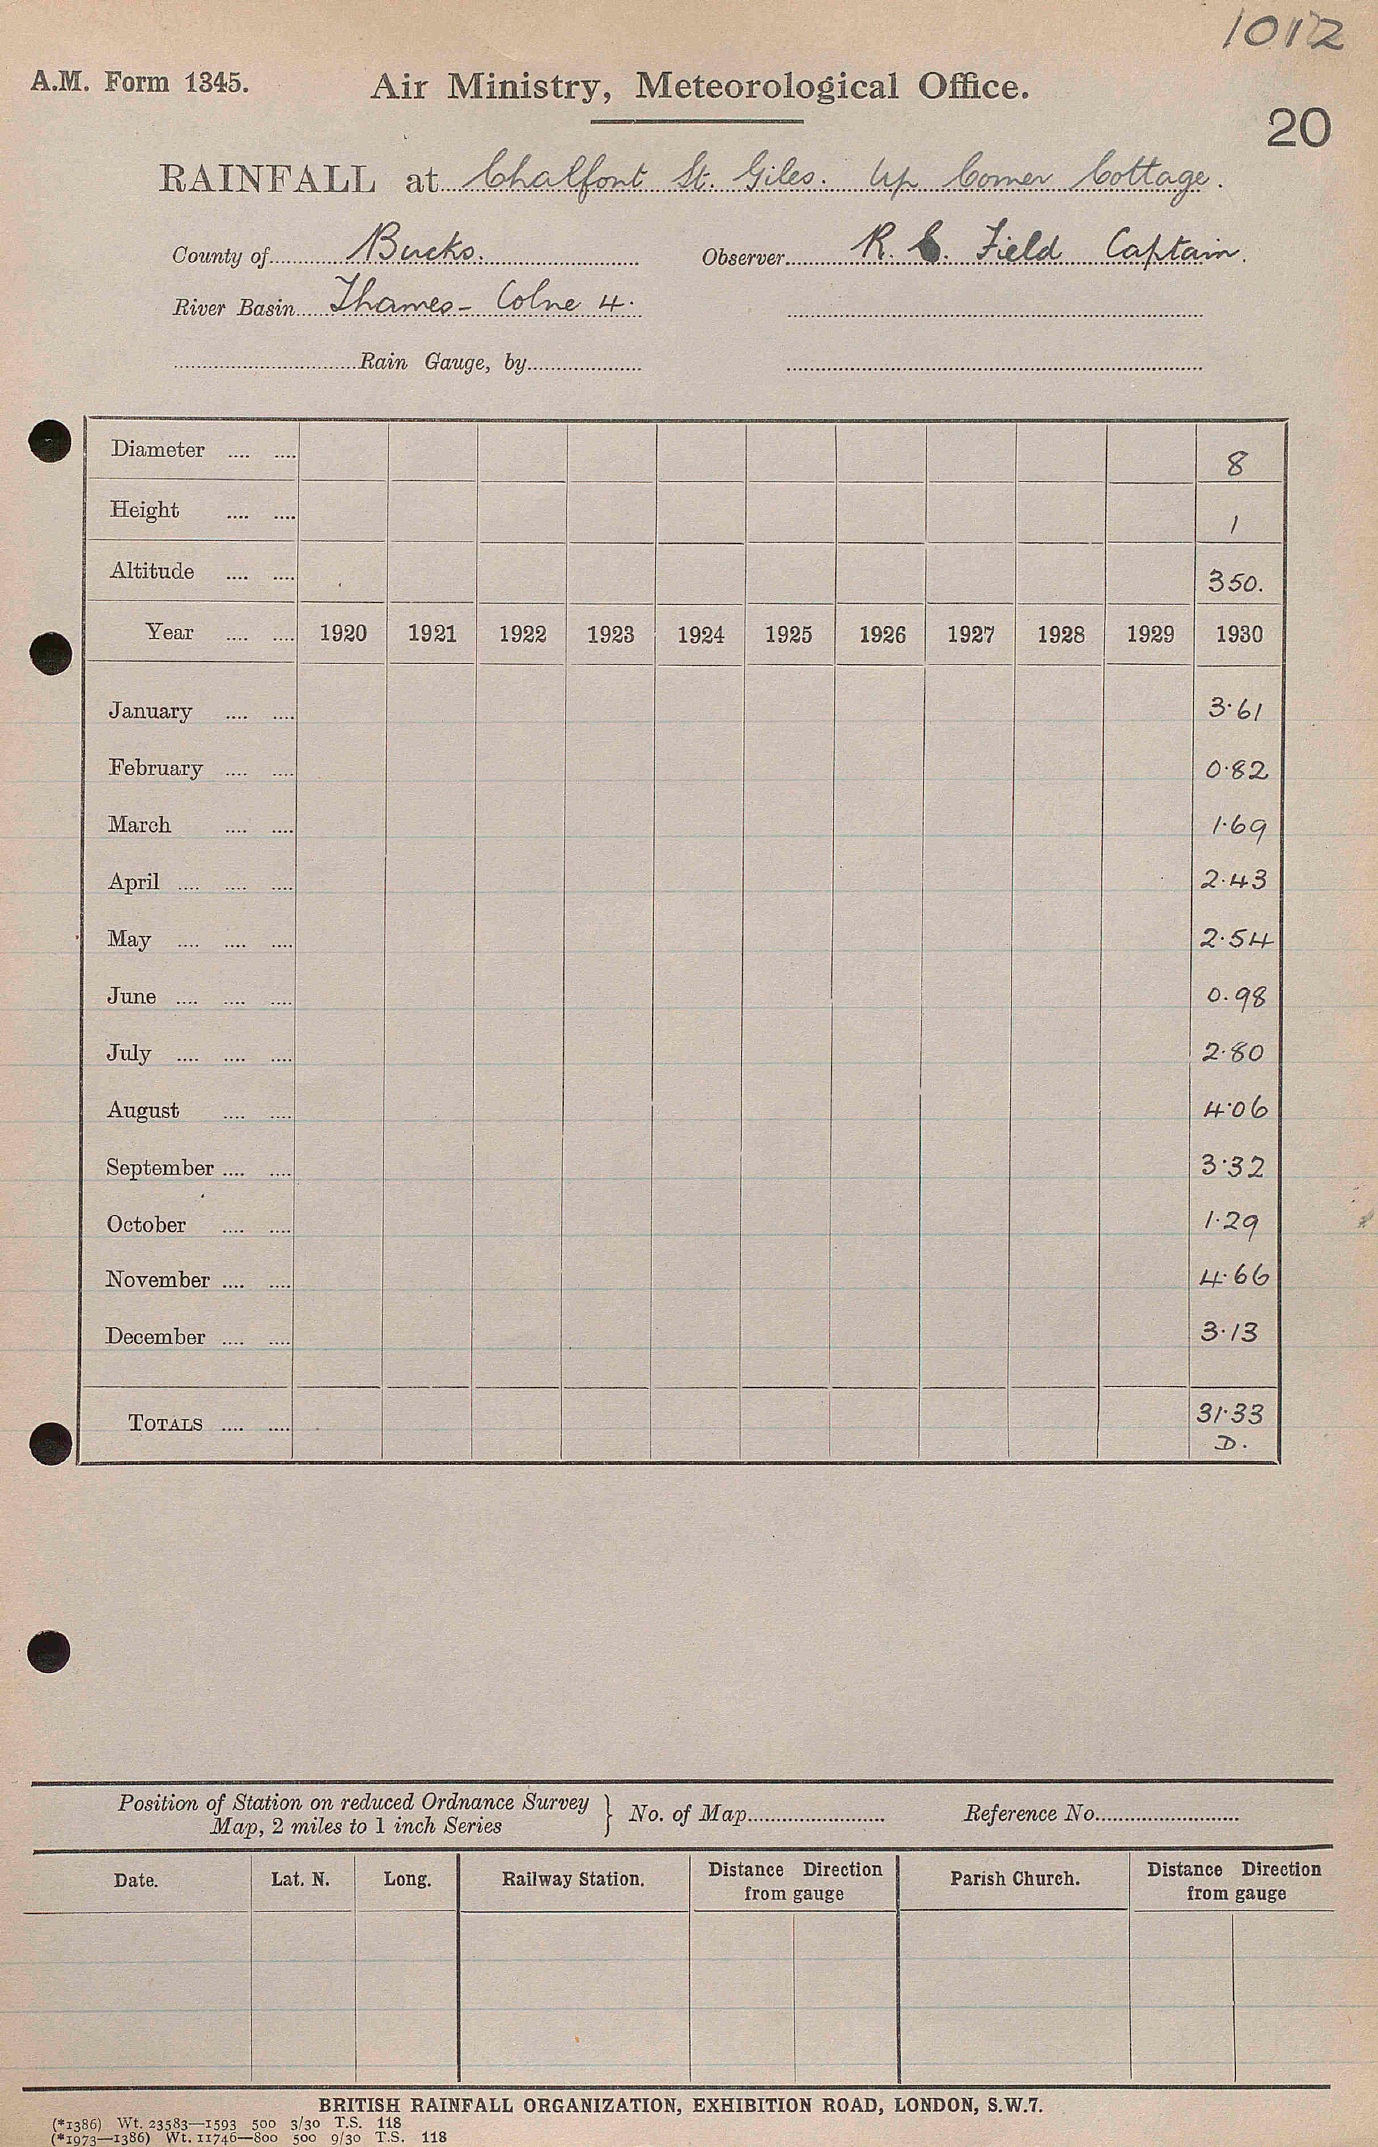 1012
A.M. Form 1345.
Air Ministry, Meteorological Office.
20
RAINFALL at Chalfont St. Giles. Up Corner Cottage.
County of Bucks. Observer R. C. Field Captain.
River Basin Thames - Colne 4.
Rain Gauge, by
Diameter .... .... 8
Height .... .... 1
Altitude .... .... 350.
Year .... .... 1920 1921 1922 1923 1924 1925 1926 1927 1928 1929 1930
January .... .... 3.61
February .... .... 0.82
March .... .... 1.69
April .... .... .... 2.43
May .... .... .... 2.54
June .... .... .... 0.98
July .... .... .... 2.80
August .... .... 4.06
September .... .... 3.32
October .... .... 1.29
November .... .... 4.66
December .... .... 3.13
TOTALS .... .... 31.33
D.
Position of Station on reduced Ordnance Survey
Map, 2 miles to 1 inch Series } No. of Map Reference No.
Date. Lat. N. Long. Railway Station. Distance Direction from gauge Parish Church. Distance Direction from gauge
BRITISH RAINFALL ORGANIZATION, EXHIBITION ROAD, LONDON, S.W.7.
(*1386) Wt. 23583—1593 500 3/30 T.S. 118
(*1973—1386) Wt. 11746—800 500 9/30 T.S. 118